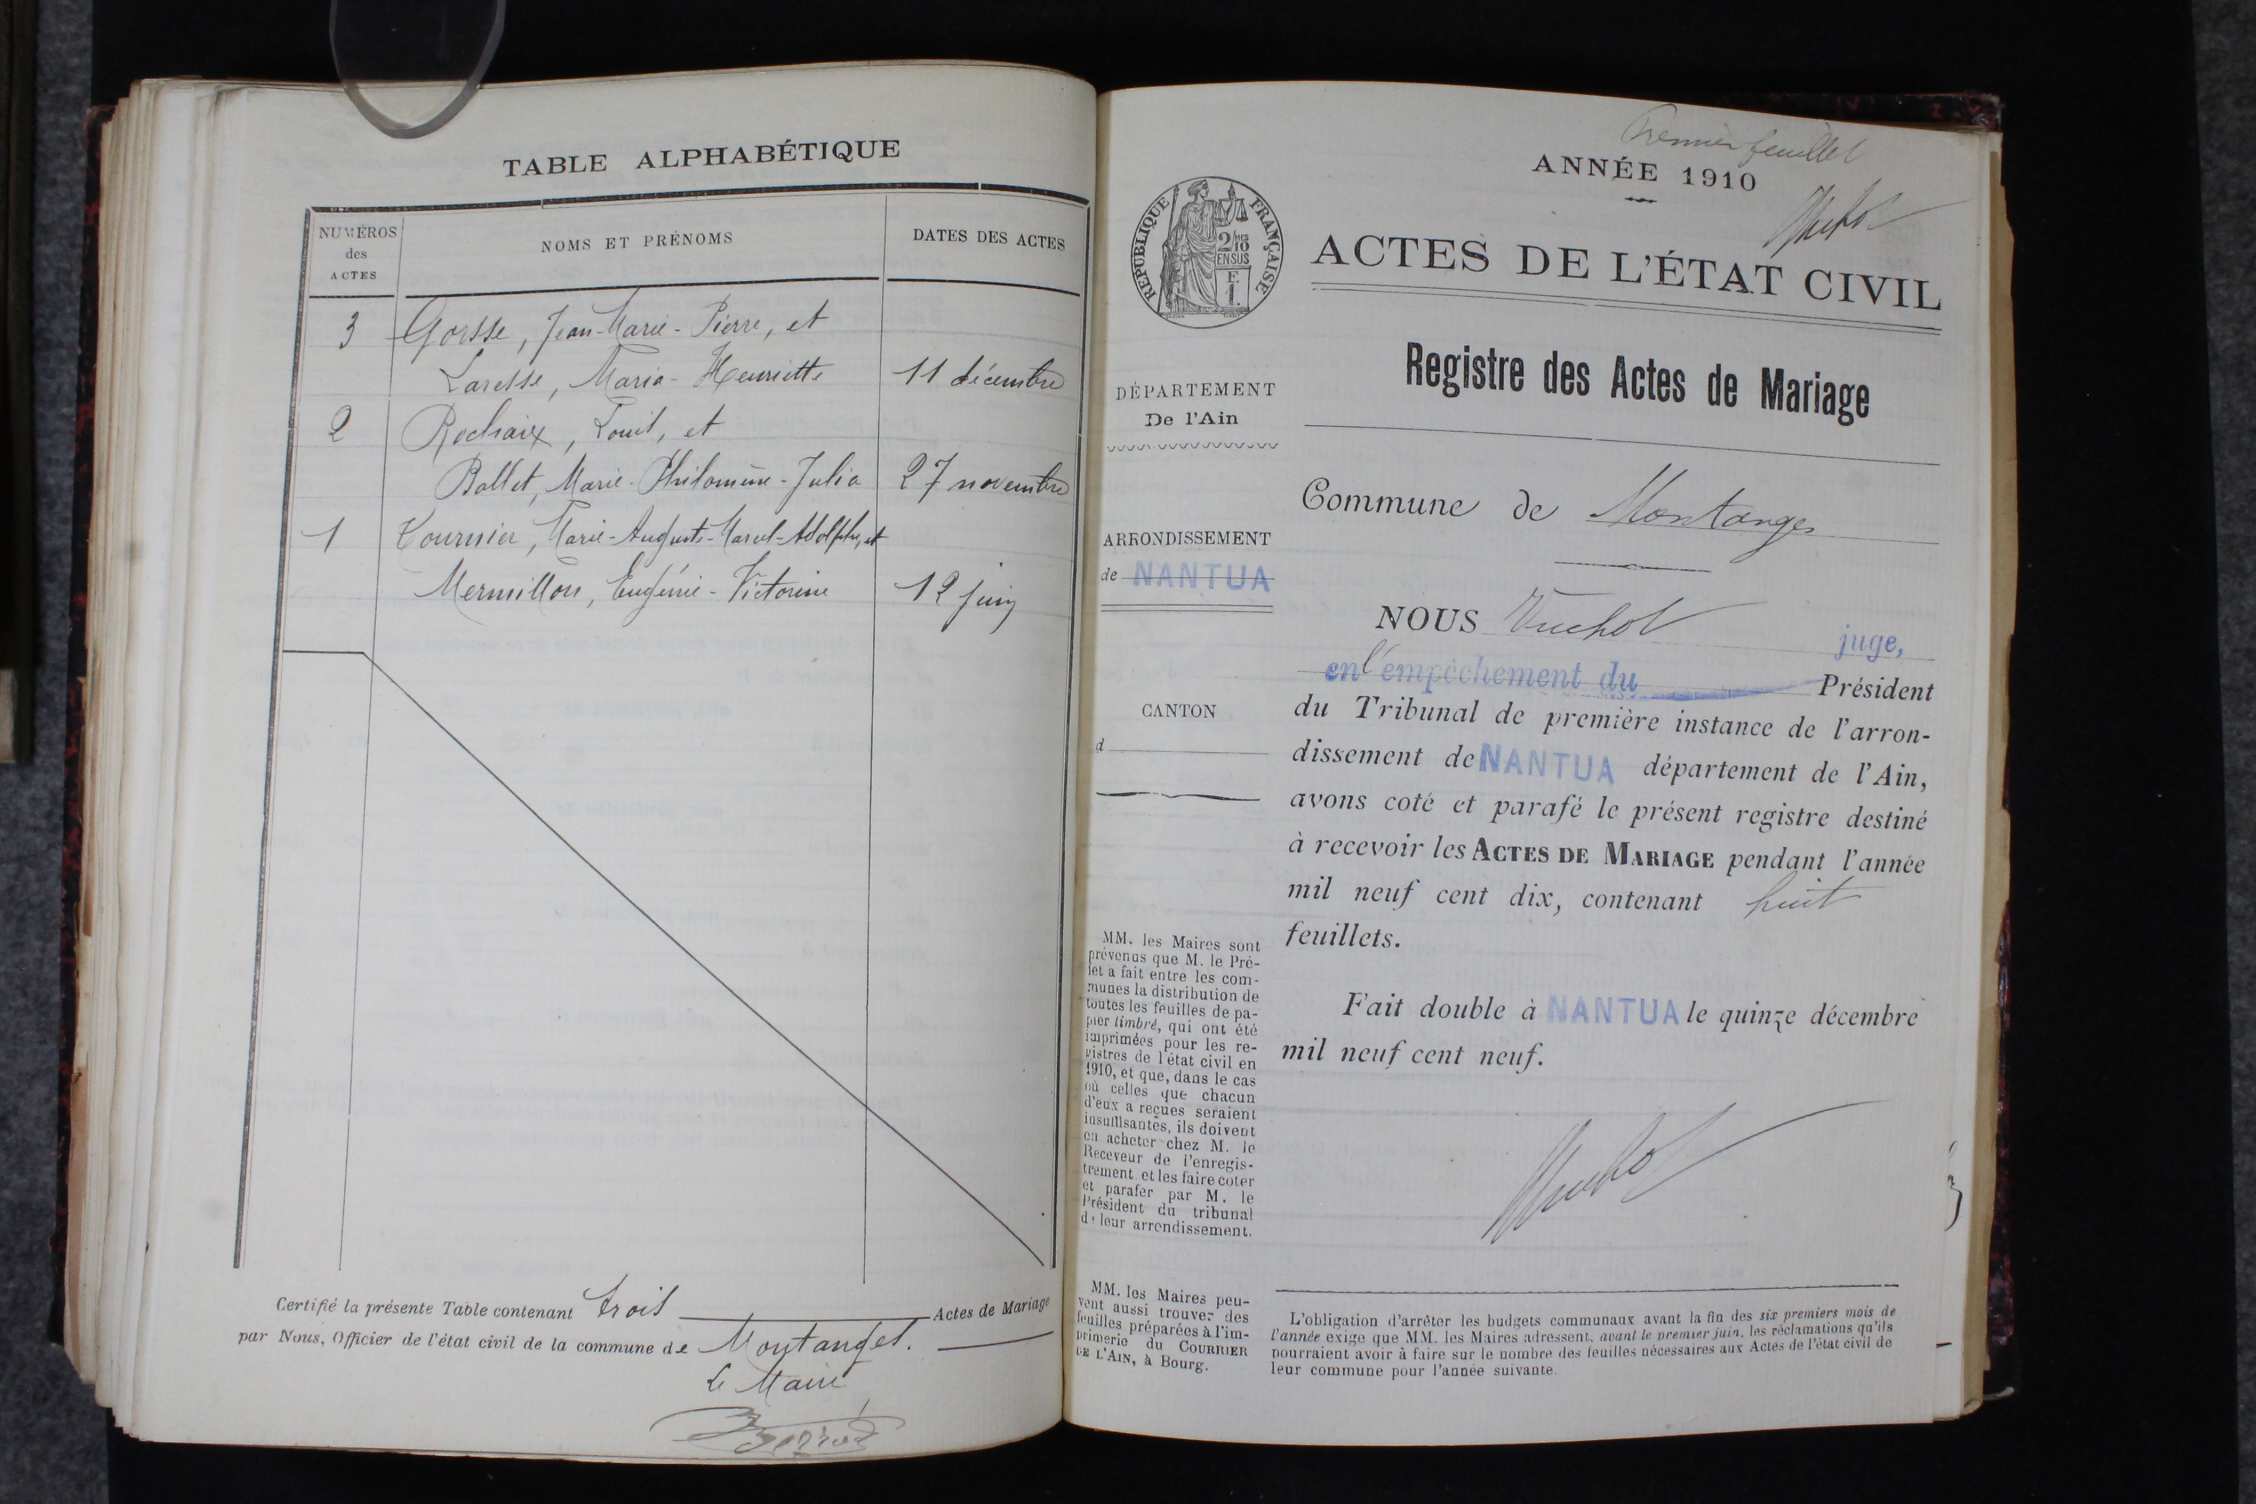 TABLE ALPHABÉTIQUE
NUMÉROS
des
ACTES
NOMS ET PRÉNOMS
DATES DES ACTES
3 Gorsse, Jean-Marie-Pierre, et
Laresse, Maria-Henriette 11 décembre
2 Rochaix, Louis, et
Ballet, Marie-Philomène-Julia 27 novembre
1 Tournier, Marie-Auguste-Marcel-Adolphe, et
Mermillon, Eugénie-Victorine 12 juin
Certifié la présente Table contenant trois Actes de Mariage
par Nous, Officier de l'état civil de la commune de Montanges.
Le Maire
Premier feuillet
ANNÉE 1910
RÉPUBLIQUE FRANÇAISE
2/10
EN SUS
F.
1.
ACTES DE L'ÉTAT CIVIL
Registre des Actes de Mariage
DÉPARTEMENT
De l'Ain
ARRONDISSEMENT
de NANTUA
CANTON
d
MM. les Maires sont
prévenus que M. le Pré-
fet a fait entre les com-
munes la distribution de
toutes les feuilles de pa-
pier timbré, qui ont été
imprimées pour les re-
gistres de l'état civil en
1910, et que, dans le cas
où celles que chacun
d'eux a reçues seraient
insuffisantes, ils doivent
en acheter chez M. le
Receveur de l'enregis-
trement et les faire coter
et parafer par M. le
Président du tribunal
de leur arrondissement.
MM. les Maires peu-
vent aussi trouver des
feuilles préparées à l'im-
primerie du COURRIER
DE L'AIN, à Bourg.
Commune de Montanges
NOUS Vuchot juge,
en l'empêchement du Président
du Tribunal de première instance de l'arron-
dissement de NANTUA département de l'Ain,
avons coté et parafé le présent registre destiné
à recevoir les ACTES DE MARIAGE pendant l'année
mil neuf cent dix, contenant huit
feuillets.
Fait double à NANTUA le quinze décembre
mil neuf cent neuf.
Vuchot
L'obligation d'arrêter les budgets communaux avant la fin des six premiers mois de
l'année exige que MM. les Maires adressent, avant le premier juin, les réclamations qu'ils
pourraient avoir à faire sur le nombre des feuilles nécessaires aux Actes de l'état civil de
leur commune pour l'année suivante.